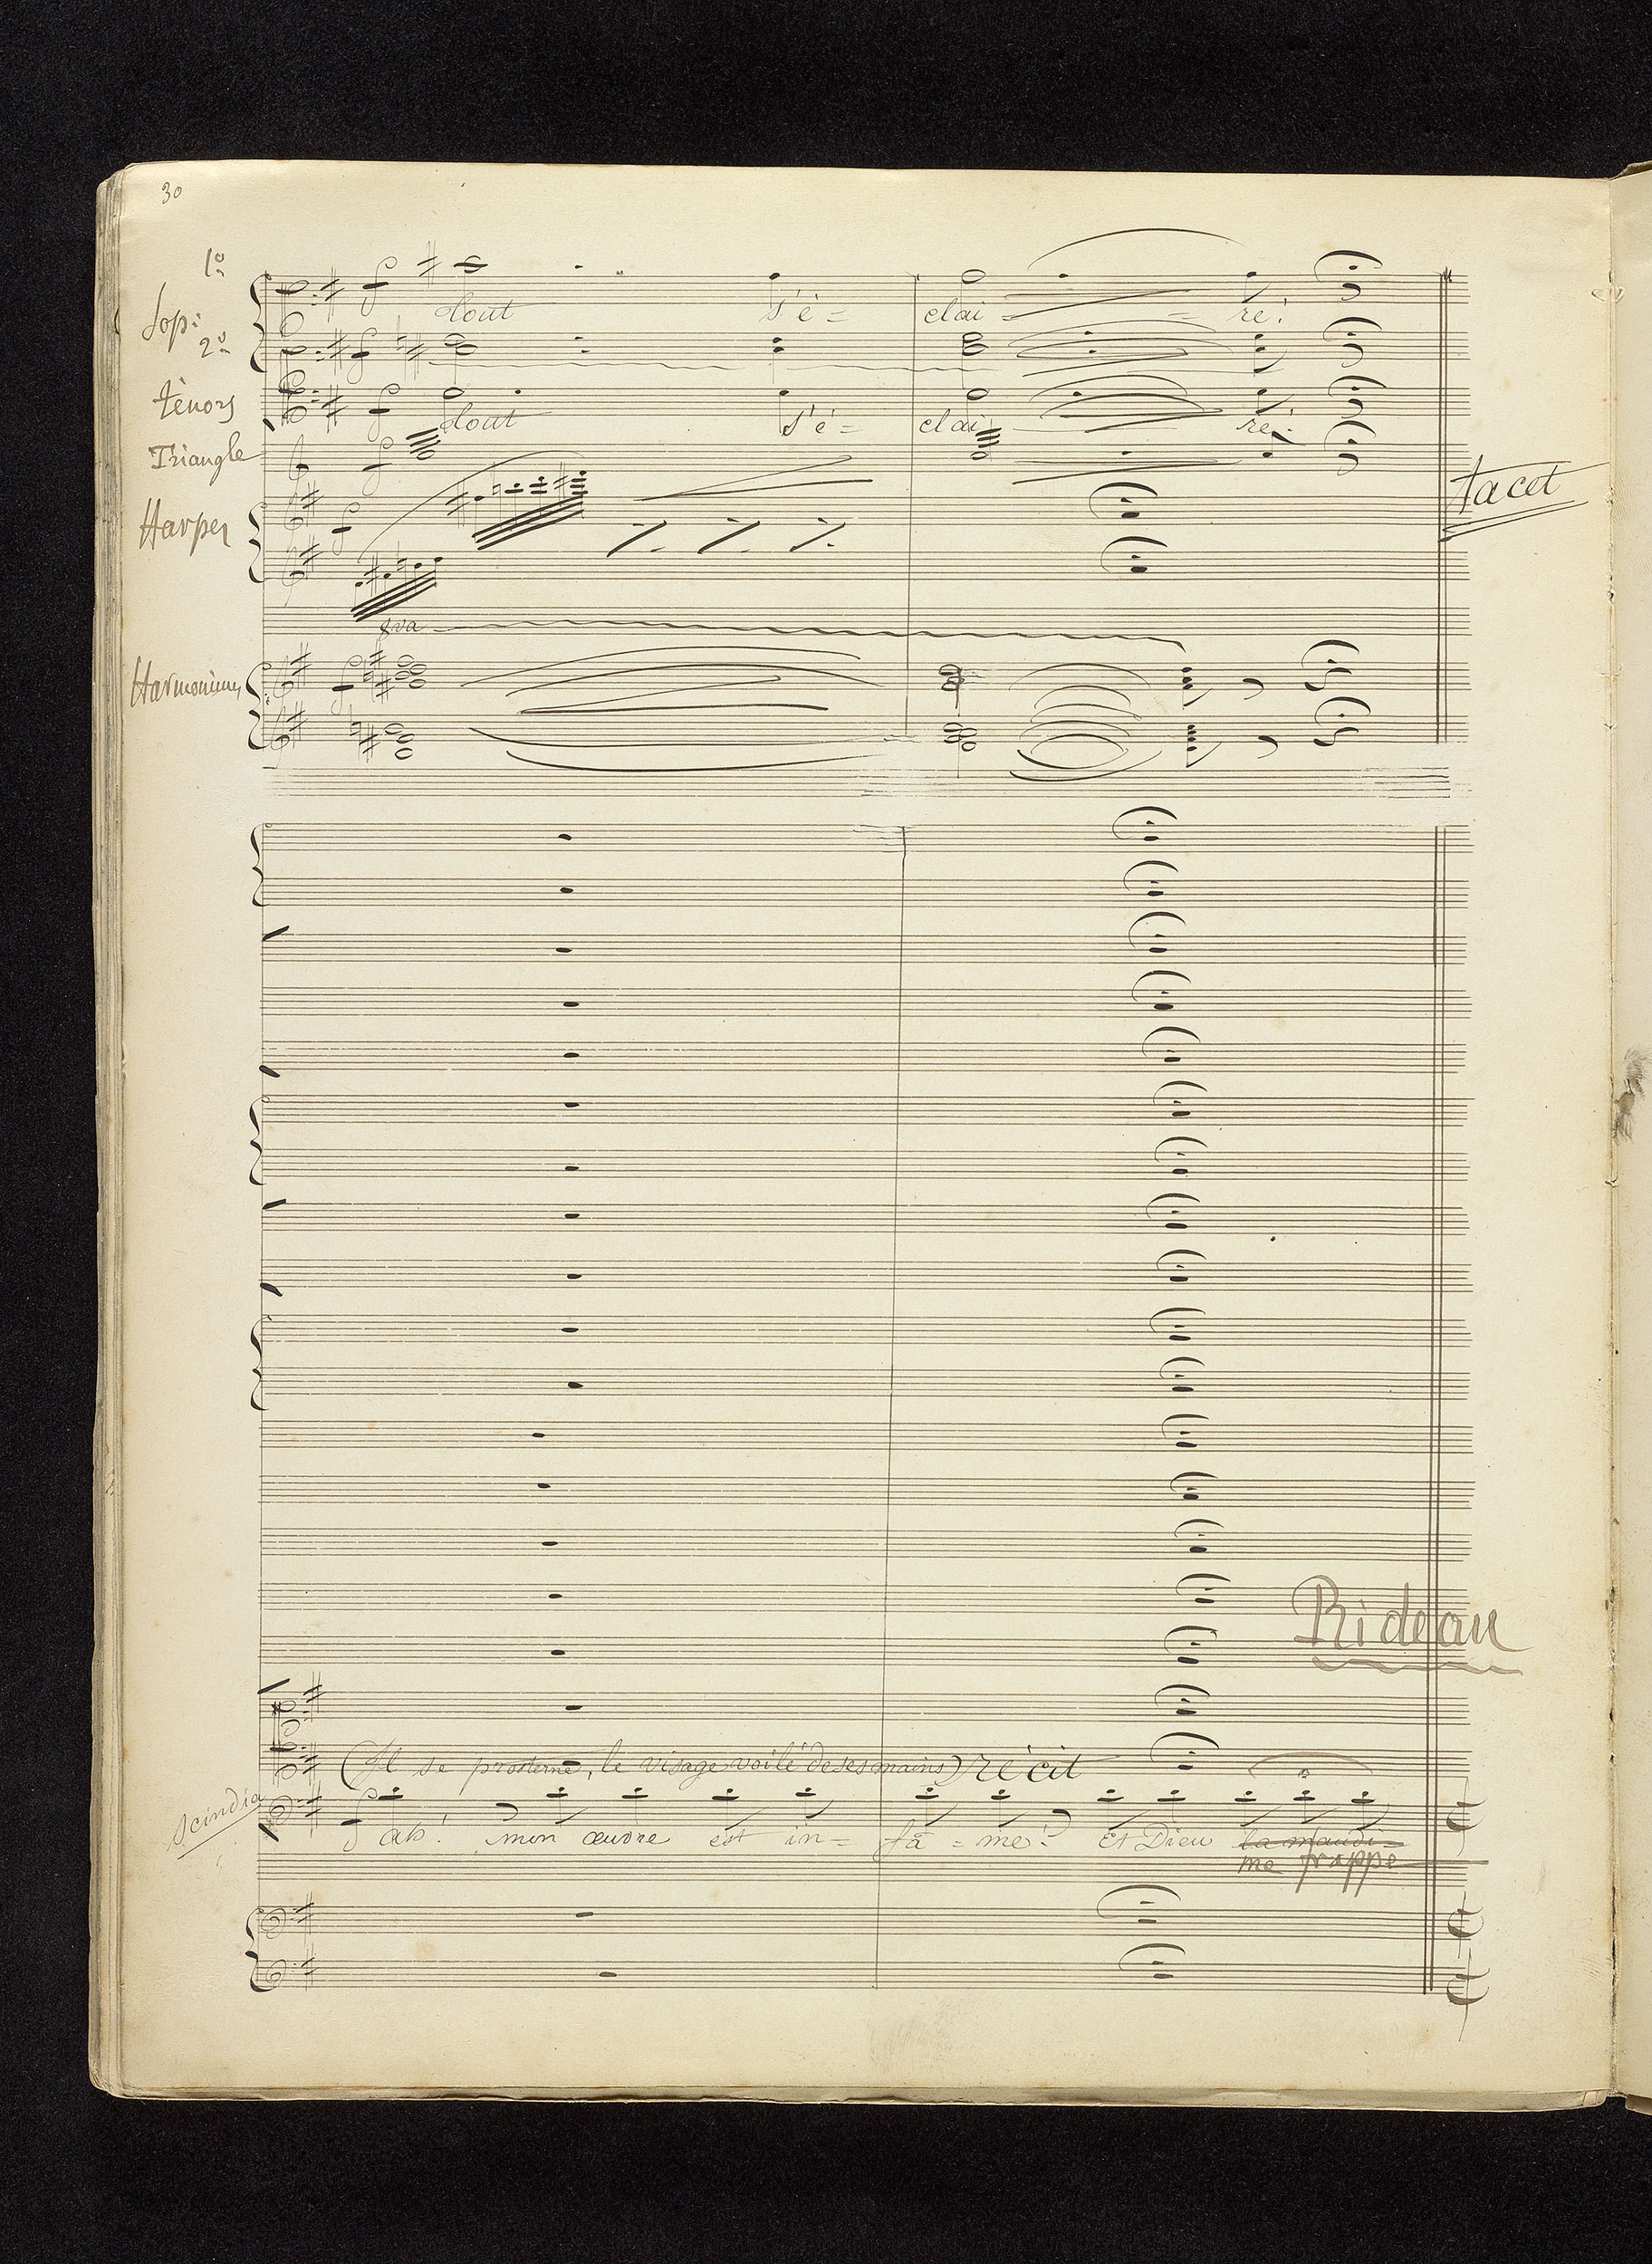 30
1º
Sop:
2º
tout s'é = clai = = re!
ténors
tout s'é = clai re!
Triangle
Harpes
tacet
8va
Harmonium
Rideau
(Il se prosterne, le visage voilé de ses mains) récit
Scindia
f ah! mon œuvre est in = fâ = me! Et Dieu la maudi =
me frappe